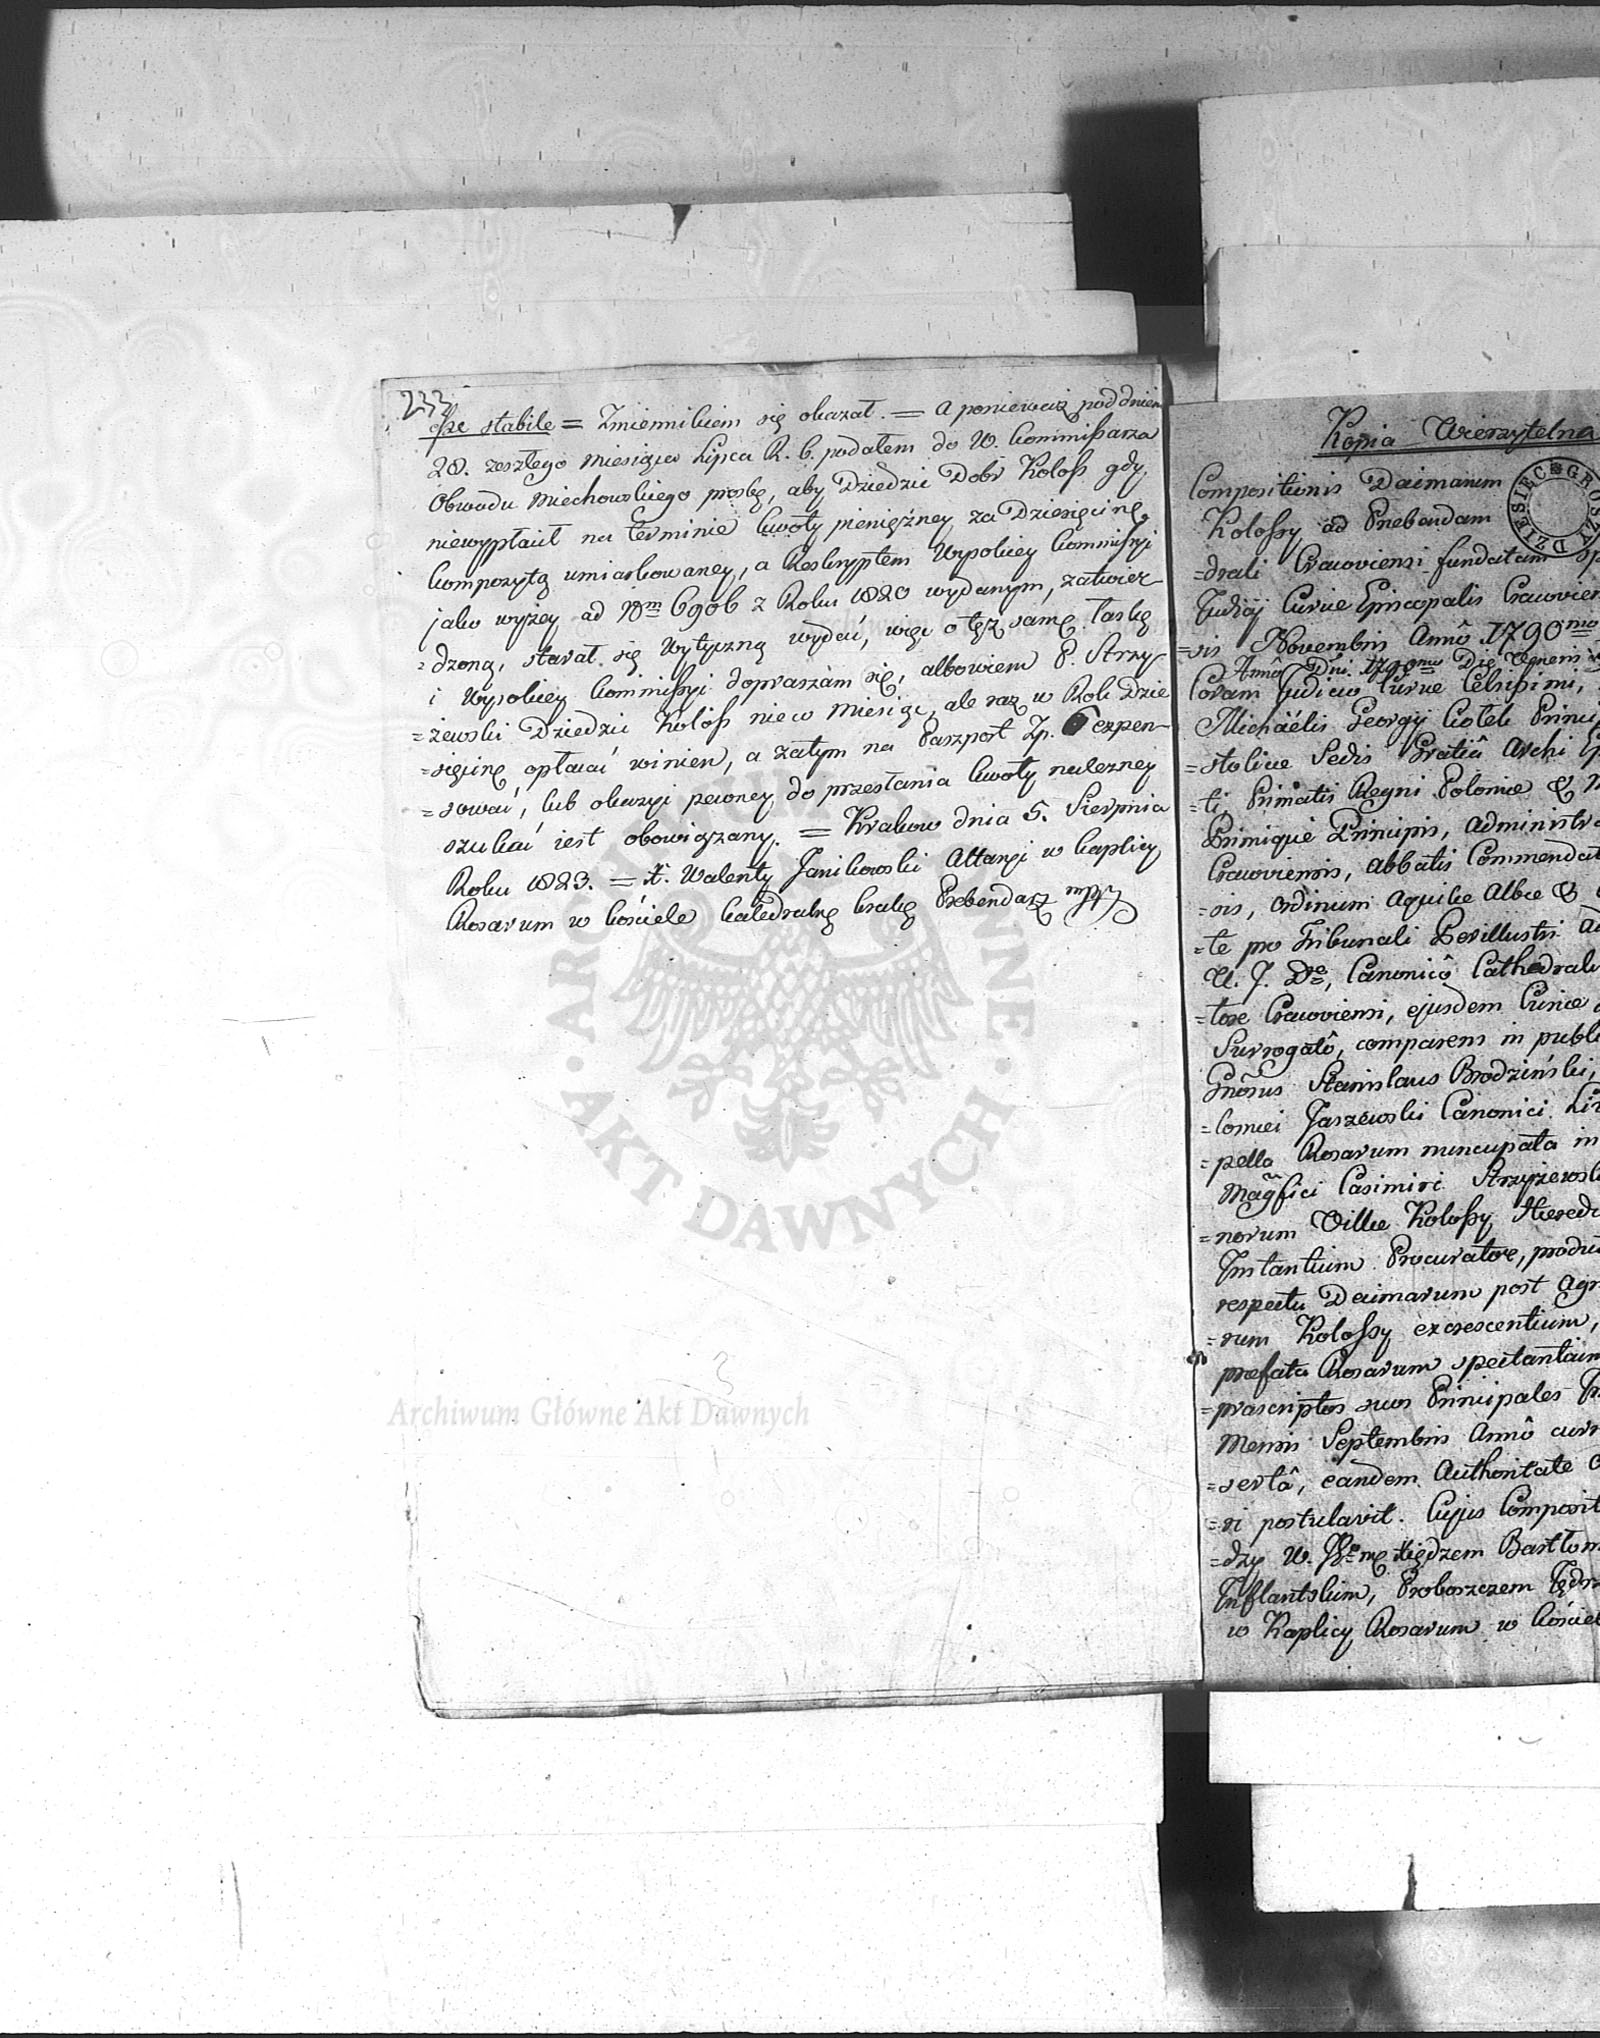 233
esse stabile = Zmiennikiem się okazał. = A ponieważ pod dniem
28. zeszłego Miesiąca Lipca R. b. podałem do W. Kommissarza
Obwodu Miechowskiego prosbę, aby Dziedzic Dobr Koloss gdy
niewypłacił na terminie kwoty pieniężney za Dziesięcinę
kompozytą umiarkowaney, a Reskryptem Wysokiey Kommissyi
jako wyżey ad Nm 6906 z Roku 1820 wydanym, zatwier-
=dzoną, starał się wytyczną wydać, więc o tęż samę łaskę
i Wysokiey Kommissyi dopraszam się, albowiem P. Strzy-
=żewski Dziedzic Koloss nie w Miesiąc, ale raz w Rok Dzie
=sięcinę opłacać winien, a zatym na Paszport Zp. 6 expen-
=sować, lub okazyi pewney do przesłania kwoty należney
szukać iest obowiązany. = Krakow dnia 5. Sierpnia
Roku 1823. = X. Walenty Janikowski Altarzy w kaplicy
Rosarum w kościele katedralnę krakę Prebendarz mpp
Archiwum Główne Akt Dawnych
ARCHIWUM GŁÓWNE · AKT DAWNYCH ·
Kopia Wierzytelna
Compositionis Decimarum
Kolossy ad Prebendam
=drali Cracoviensi fundatam
Judicij Curiae Episcopalis Cracovien
=sis Novembris Annô 1790mo
Annô Dni. 1790mo Die Veneris
Coram Judicio Curiae Celsissimi,
Michaëlis Georgij Ciołek Princi
=stolicae Sedis Gratiâ Archi Ep
=ti, Primatis Regni Poloniae &
Primique Principis, Administra
Cracoviensis, Abbatis Commendat
=sis, Ordinum Aquilae Albae &
=te pro Tribunali Perillustri
U. J. Dre, Canonicô Cathedrali
=tore Cracoviensi, ejusdem Curiae
Surrogatô, comparens in publi
Gnôsus Stanislaus Brodziński,
=lomei Jaszewski Canonici Liv
=pella Rosarum nuncupata in
Magfici Casimiri Strzyżewski
=norum Villae Kolossy Haeredi
Instantium Procuratore, produ
respectu Decimarum post Agr
=rum Kolossy excrescentium,
praefata Rosarum spectantium
=prascriptos suos Principales
Mensis Septembris Annô curr
=sertâ, eandem Authoritate
=ri postulavit. Cujus Composit
=dzy W. Jmę Xiędzem Bartłom
Inflantskim, Proboszczem Jędrz
w Kaplicy Rosarum w kościel
DZIESIĘĆ GROSZY